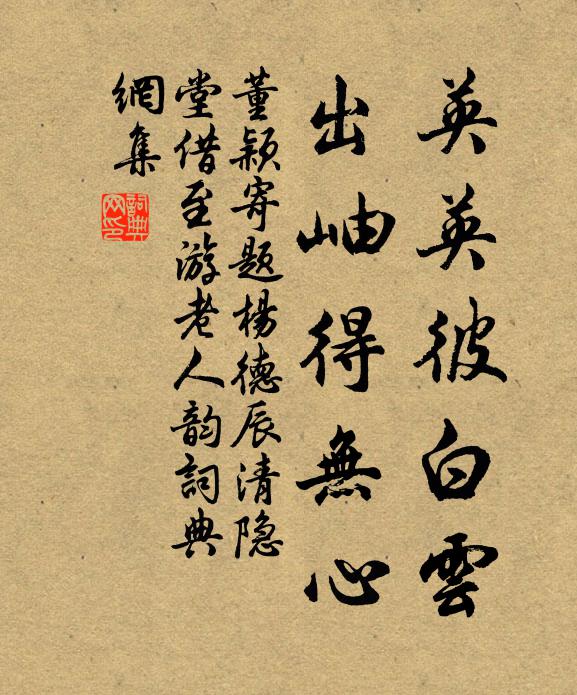 英英彼白雲
出岫得無心
董颖寄题楊德辰清隐
堂借至游老人韵詞典
網集
詞典網印